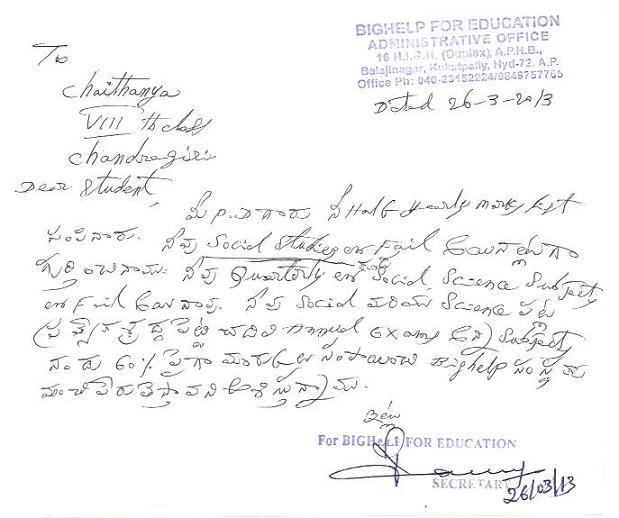 BIGHELP FOR EDUCATION
ADMINISTRATIVE OFFICE
16 H.I.G.H. (Duplex), A.P.H.B.,
Balajinagar, Kukatpally, Hyd-72. A.P.
Office Ph: 040-23152224/9849757765
Dated 26-3-2013
To
Chaithanya
VIII th class
Chandragiri
Dear Student,
మీ P.D గారు నీ Half yearly marks list
పంపినారు. నీవు Social Studies లో Fail అయినట్లుగా
గుర్తించినాము. నీవు Quarterly లో కూడా Social Science Subject
లో Fail అయినావు. నీవు Social మరియు Science పట్ల
ప్రత్యేక శ్రద్ధ పెట్టి చదివి Annual Exams అన్ని Subjects
నందు 60% పైగా మార్కులు సంపాయించి Bighelp సంస్థకు
మంచి పేరు తెస్తావని ఆశిస్తున్నాము.
ఇట్లు
For BIGHELP FOR EDUCATION
SECRETARY
26/03/13